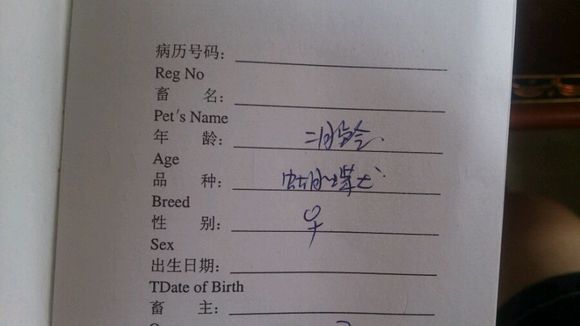 病历号码：
Reg No
畜 名：
Pet's Name
年 龄： 二月龄
Age
品 种： 蝴蝶犬
Breed
性 别： ♀
Sex
出生日期：
TDate of Birth
畜 主：